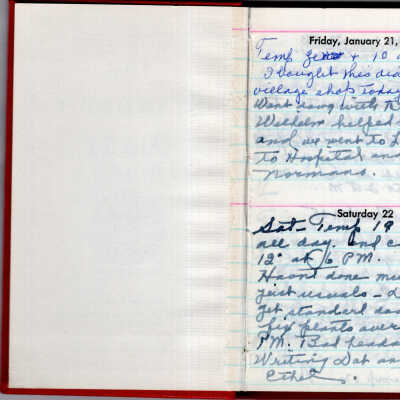 Friday, January 21,
Temp zero + 10 a
I bought this dia
village shop Today
Went down with
helped
and we went to L
to Hospital and
Normans.
Saturday 22
Sat- Temp 19
all day. and c
12° at 6 P.M.
Havnt done muc
just usuals - d
get standard
fix plants over
P.M. Bad heada
Writing Dot an
Ethel.